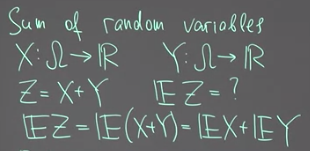 Sum of random variables
X: Ω → ℝ Y: Ω → ℝ
Z = X + Y 𝔼Z = ?
𝔼Z = 𝔼(X+Y) = 𝔼X + 𝔼Y